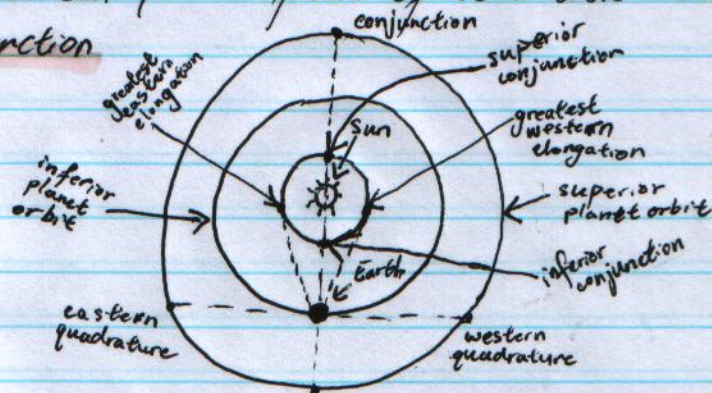 conjunction
nction
superior
conjunction
greatest
eastern
elongation
sun
greatest
western
elongation
inferior
planet
orbit
superior
planet orbit
Earth
inferior
conjunction
eastern
quadrature
western
quadrature